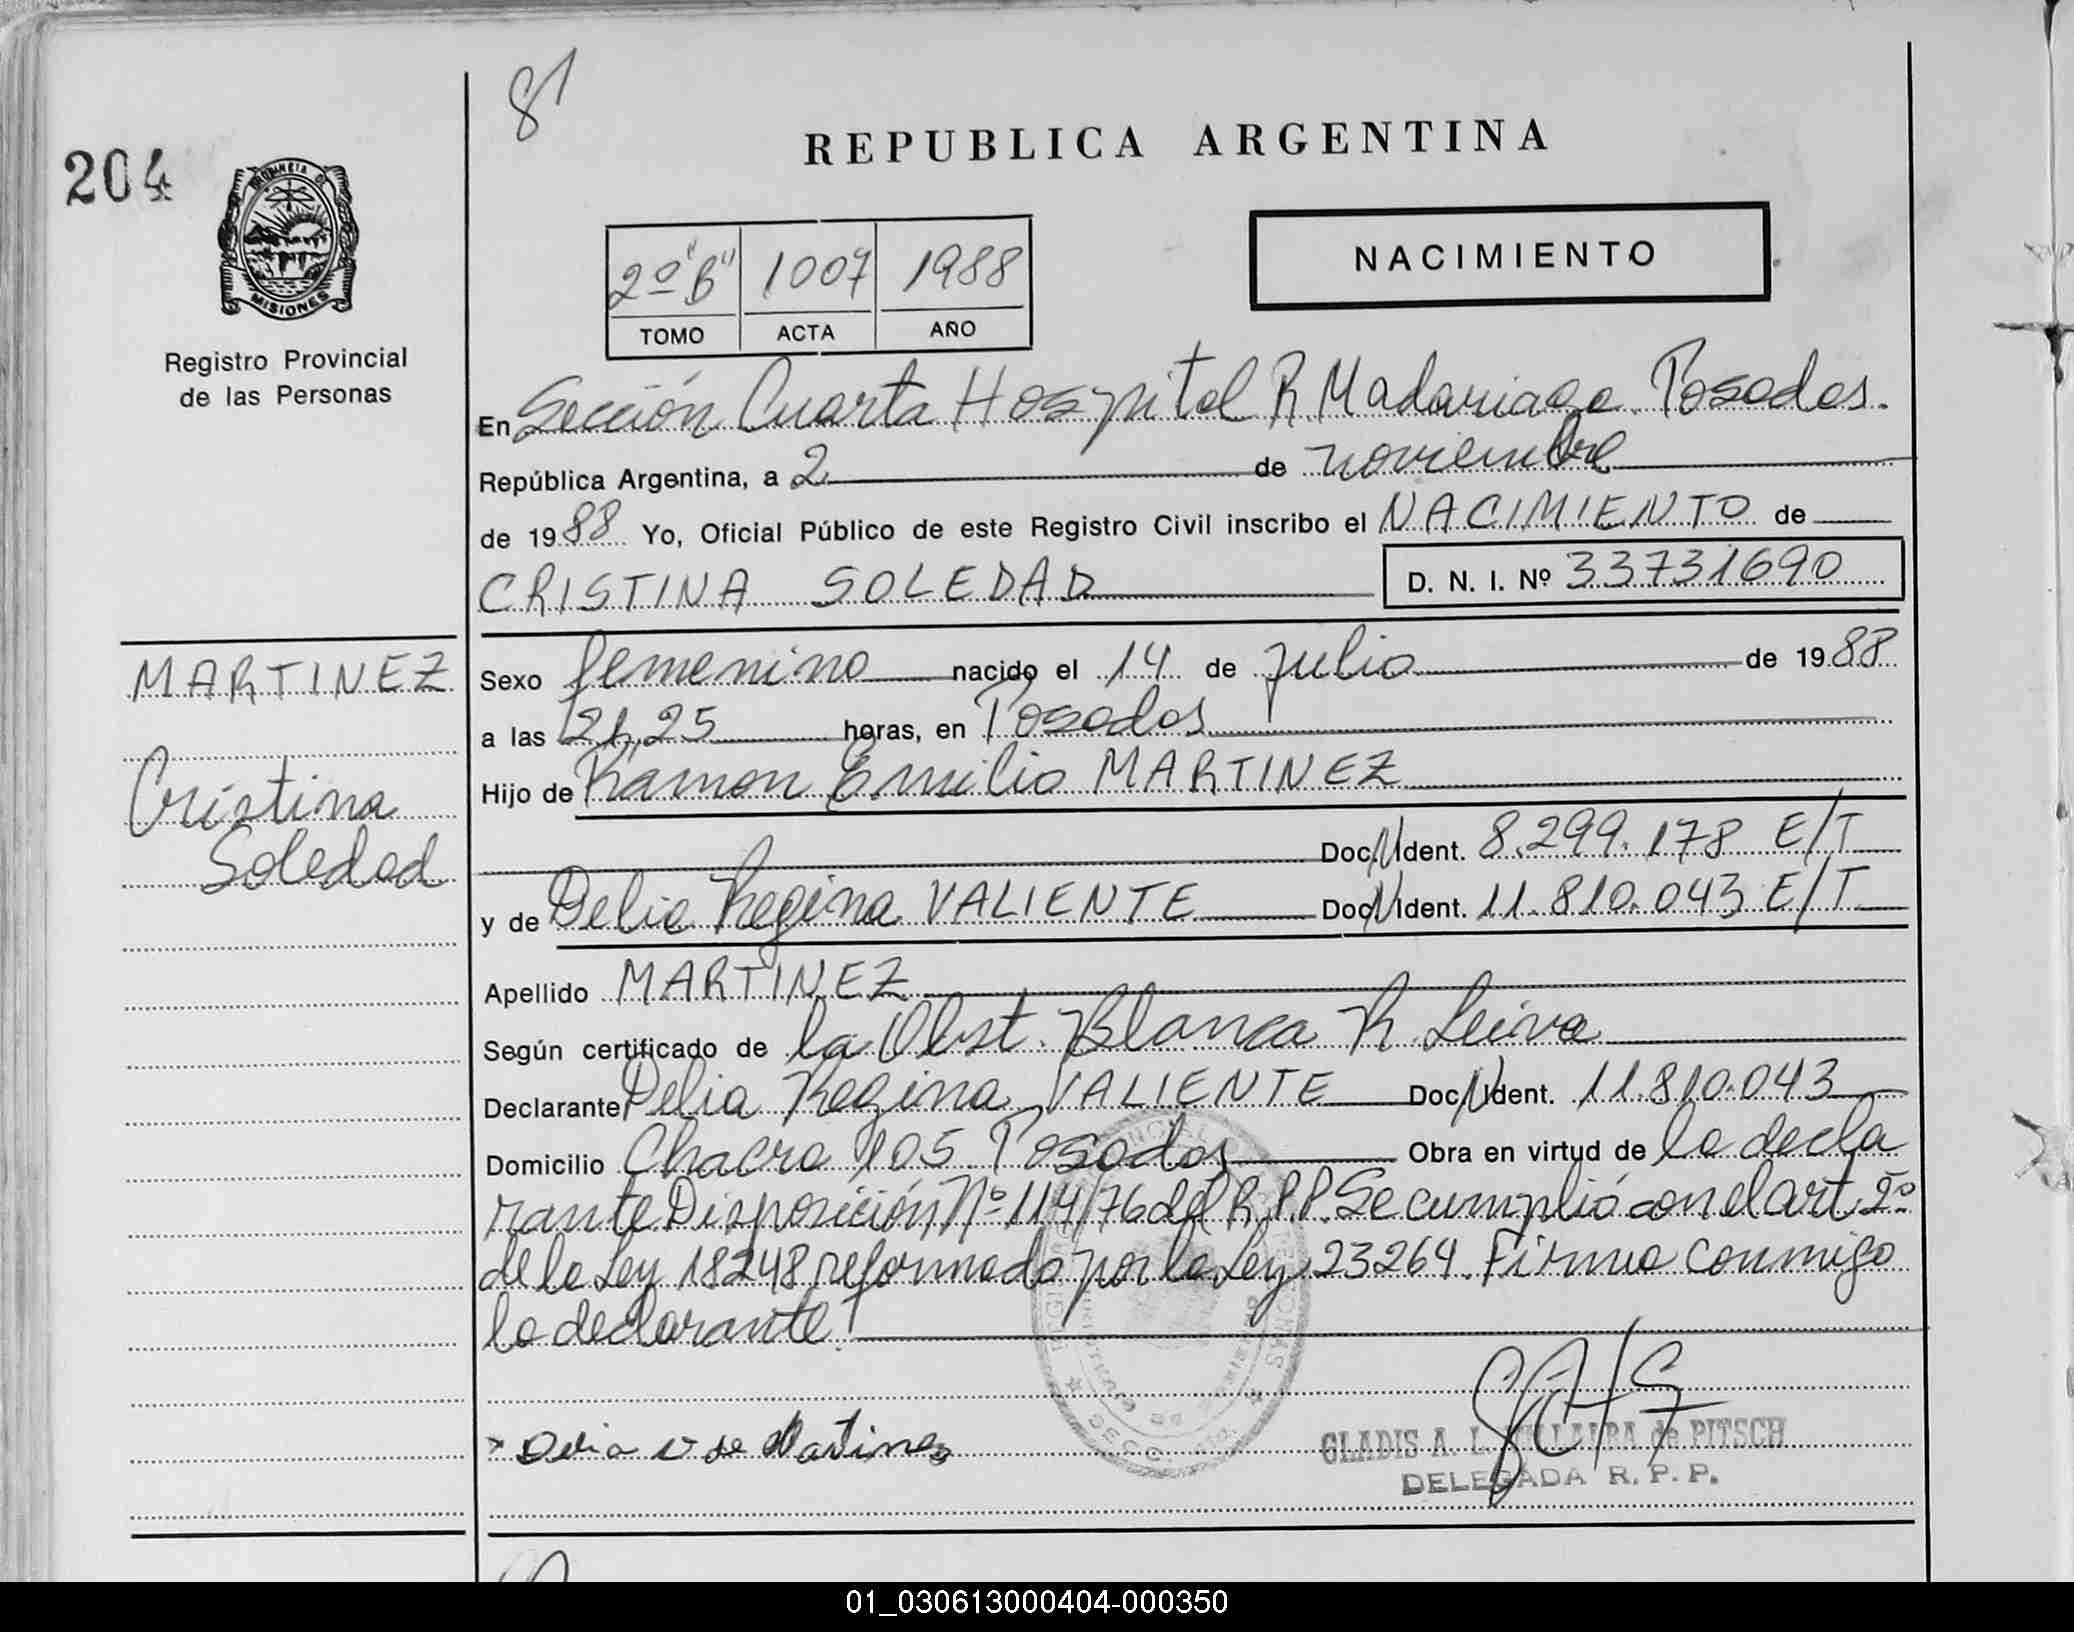 81
REPUBLICA ARGENTINA
204
PROVINCIA DE
MISIONES
Registro Provincial
de las Personas
2º "B" 1007 1988
TOMO ACTA AÑO
NACIMIENTO
En Sección Cuarta Hospital R. Madariaga. Posadas.
República Argentina, a 2 de noviembre
de 1988 Yo, Oficial Público de este Registro Civil inscribo el NACIMIENTO de
CRISTINA SOLEDAD D. N. I. Nº 33731690
MARTINEZ
Cristina
Soledad
Sexo femenino nacido el 14 de julio de 1988
a las 12h,25 horas, en Posadas
Hijo de Ramon Emilio MARTINEZ
Doc.N.Ident. 8.299.178 E/T
y de Delia Regina VALIENTE Doc.N.Ident. 11.810.043 E/T
Apellido MARTINEZ
Según certificado de la Obst. Blanca R. Leiva
Declarante Delia Regina VALIENTE Doc.N.Ident. 11.810.043
Domicilio Chacra 105 Posadas Obra en virtud de la decla
rante Disposición Nº 114/76 del R.P.P. Se cumplió con el art. 2º
de la Ley 18248 reformado por la Ley 23264. Firma conmigo
la declarante.
Delia V de Martinez
GLADIS A. L. VILLALBA de PITSCH
DELEGADA R. P. P.
01_030613000404-000350